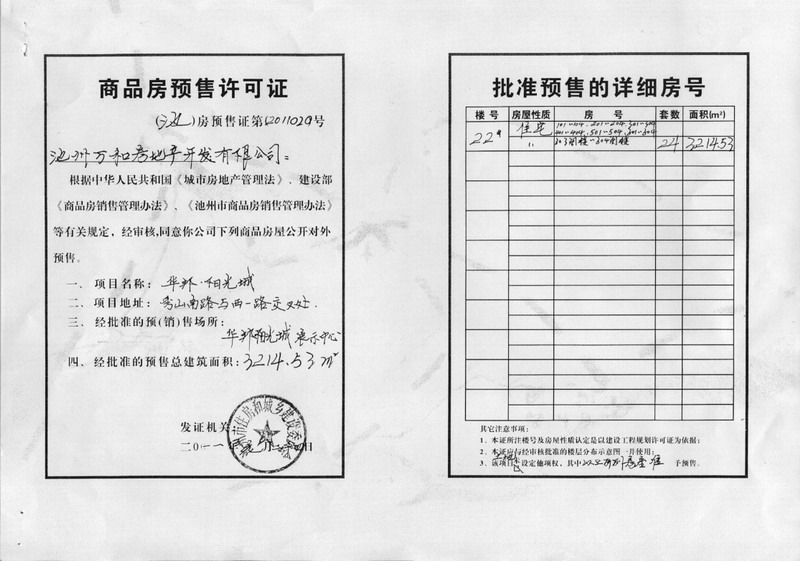 商品房预售许可证
(池)房预售证第(2011029号
池州万和房地产开发有限公司:
根据中华人民共和国《城市房地产管理法》、建设部
《商品房销售管理办法》、《池州市商品房销售管理办法》
等有关规定，经审核,同意你公司下列商品房屋公开对外
预售。
一、项目名称：华邦·阳光城
二、项目地址：秀山南路与西一路交叉处.
三、经批准的预(销)售场所：
华邦阳光城展示中心
四、经批准的预售总建筑面积:3214.53m²
发证机关
市住房和城乡建设委员会
二○一一年 月 日
批准预售的详细房号
楼号 房屋性质 房 号 套数 面积(m²)
22# 住宅 101-104、201-204、301-304
401-404、501-504、601-604
〃 303阁楼-304阁楼 24 3214.53
其它注意事项：
1、本证所注楼号及房屋性质认定是以建设工程规划许可证为依据；
2、本证应与经审核批准的楼层分布示意图一并使用；
3、该项目 设定他项权，其中以上所列房屋准予预售。